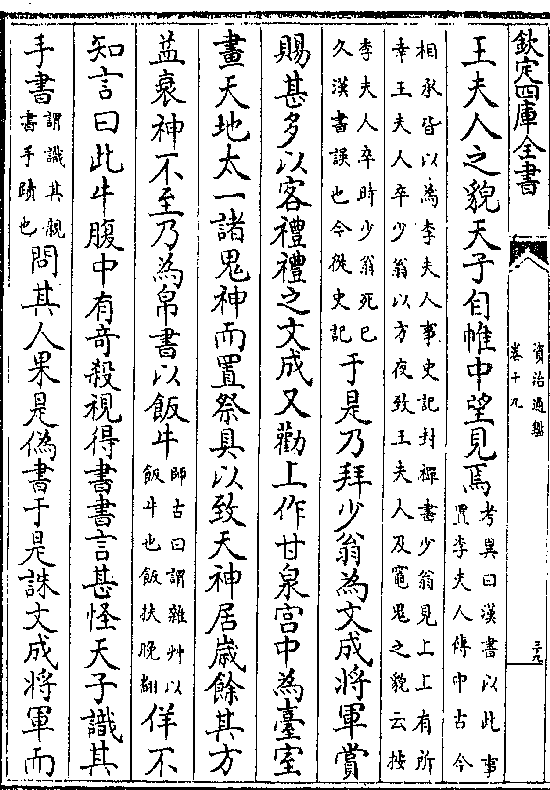 欽定四庫全書
資治通鑑
卷十九
二十九
王夫人之貌天子自帷中望見焉考異曰漢書以此事置李夫人傳中古今
相承皆以為李夫人事史記封禪書少翁見上上有所幸王夫人卒少翁以方夜致王夫人及竈鬼之貌云按
李夫人卒時少翁死已久漢書誤也今從史記于是乃拜少翁為文成將軍賞
賜甚多以客禮禮之文成又勸上作甘泉宮中為臺室
畫天地太一諸鬼神而置祭具以致天神居歲餘其方
益衰神不至乃為帛書以飯牛師古曰謂雜艸以飯牛也飯扶晚翻佯不
知言曰此牛腹中有竒殺視得書書言甚怪天子識其
手書謂識其親書手蹟也問其人果是偽書于是誅文成將軍而